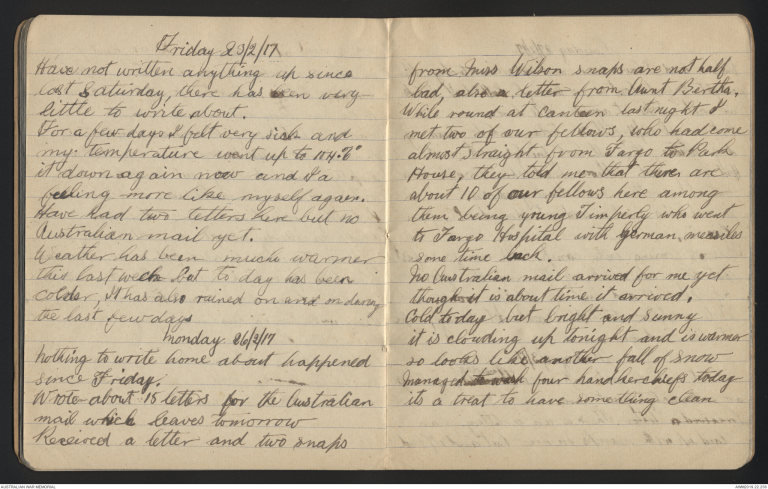 Friday 23/2/17
Have not written anything up since
last Saturday, there has been very
little to write about.
For a few days I felt very sick and
my temperature went up to 104.
it down again now and I'a
feeling more like myself again.
Have had two letters here but no
Australian mail yet.
Weather has been much warmer
this last week but to day has been
colder, It has also rained on and on during
the last few days
Monday 26/2/17
Nothing to write home about happened
since Friday.
Wrote about 15 letters for the Australian
mail which leaves tomorrow
Received a letter and two snaps
from Miss Wilson snaps are not half
bad, also a letter from Aunt Bertha.
While round at canteen last night I
met two of our fellows, who had come
almost straight from Fargo to Park
House, they told me that there are
about 10 of our fellows here among
them being young Timperly who went
to Fargo Hospital with german measles
some time back.
No Australian mail arrived for me yet
though it is about time it arrived.
Cold today but bright and sunny
it is clouding up tonight and is warmer
so looks like another fall of snow
Managed to wash four handkerchiefs today
its a treat to have something clean
AUSTRALIAN WAR MEMORIAL